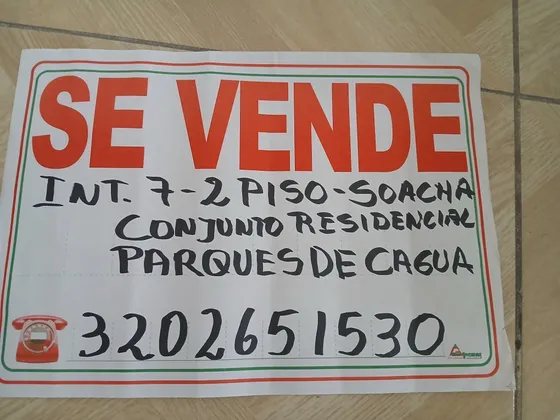 SE VENDE
INT. 7-2 PISO-SOACHA
CONJUNTO RESIDENCIAL
PARQUES DE CAGUA
3202651530